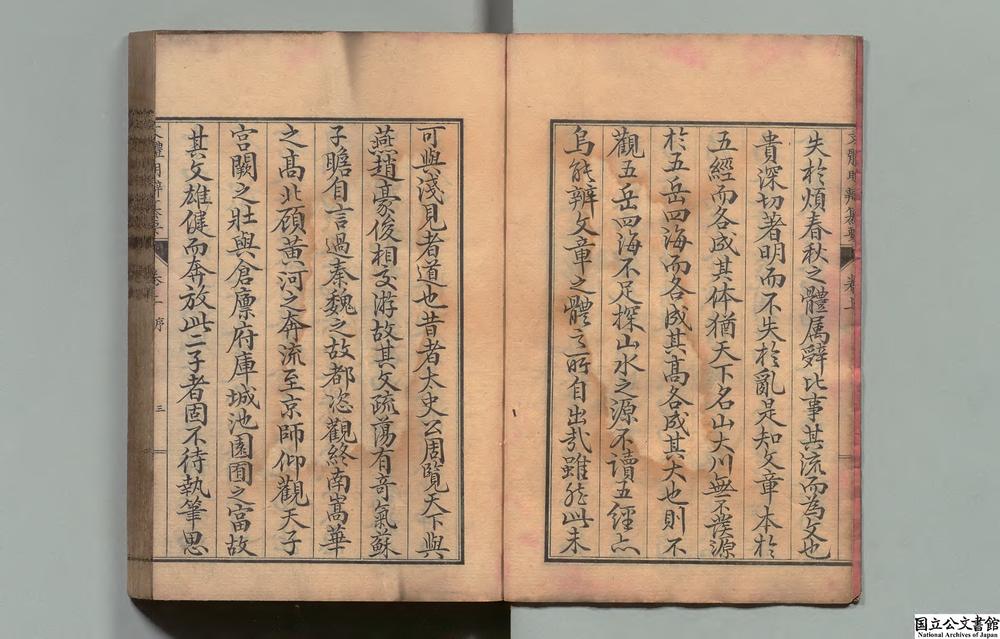 失於煩春秋之體属辭比事其流而為文也
貴深切著明而不失於亂是知文章本於
五經而各成其体猶天下名山大川無不發源
於五岳四海而各成其髙各成其大也則不
觀五岳四海不足探山水之源不讀五經亦
烏能辨文章之體之所自出哉雖然此未
可與淺見者道也昔者太史公周覽天下與
燕趙豪俊相交游故其文疏蕩有竒氣蘇
子瞻自言過秦魏之故都恣觀終南嵩華
之髙北顧黃河之奔流至京師仰觀天子
宮闕之壯與倉廪府庫城池園囿之富故
其文雄健而奔放此二子者固不待執筆思
文體明辯
卷之序
三
国立公文書館
National Archives of Japan